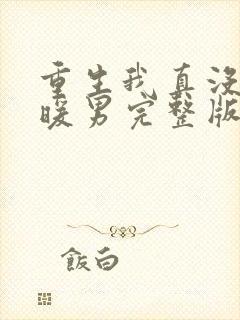 重生我真没
暖男完整版
飯白